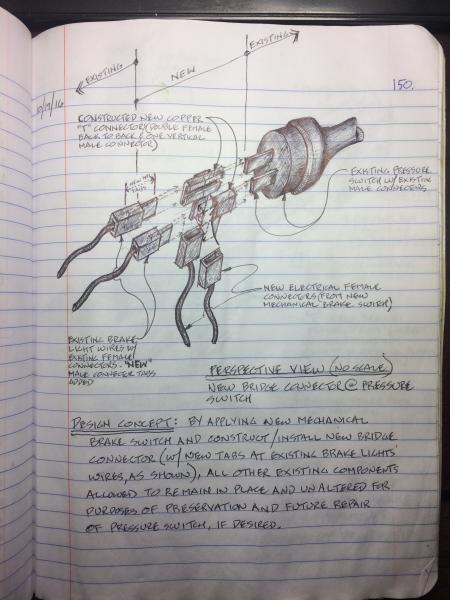 EXISTING
NEW
EXISTING
150.
10/17/16
CONSTRUCTED NEW COPPER
"T" CONNECTOR (DOUBLE FEMALE
BACK TO BACK & ONE VERTICAL
MALE CONNECTOR)
NEW MALE
TABS
EXISTING PRESSURE
SWITCH W/ EXISTING
MALE CONNECTORS
NEW ELECTRICAL FEMALE
CONNECTORS (FROM NEW
MECHANICAL BRAKE SWITCH)
EXISTING BRAKE
LIGHT WIRES W/
EXISTING FEMALE
CONNECTORS. "NEW"
MALE CONNECTOR TABS
ADDED
PERSPECTIVE VIEW (NO SCALE)
NEW BRIDGE CONNECTOR @ PRESSURE
SWITCH
DESIGN CONCEPT: BY APPLYING NEW MECHANICAL
BRAKE SWITCH AND CONSTRUCT/INSTALL NEW BRIDGE
CONNECTOR (W/ NEW TABS AT EXISTING BRAKE LIGHTS'
WIRES, AS SHOWN), ALL OTHER EXISTING COMPONENTS
ALLOWED TO REMAIN IN PLACE AND UNALTERED FOR
PURPOSES OF PRESERVATION AND FUTURE REPAIR
OF PRESSURE SWITCH, IF DESIRED.